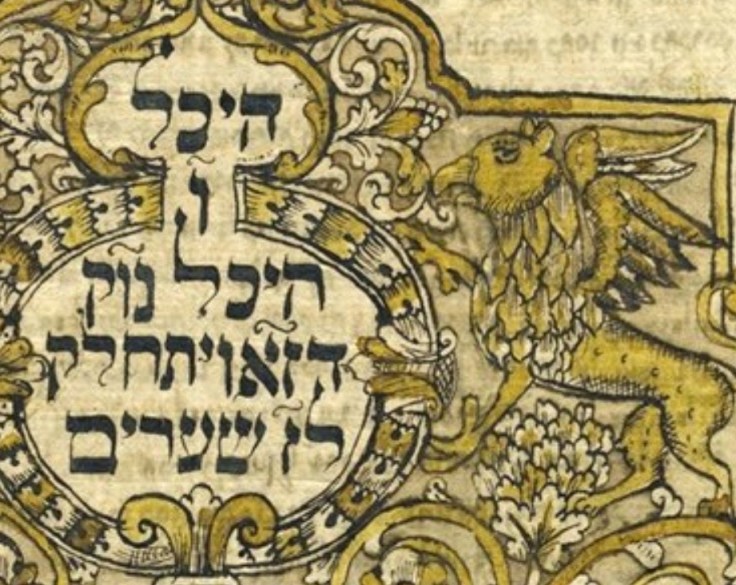 היכל
ו
היכל נוק
הזא ויתחלק
לז שערים